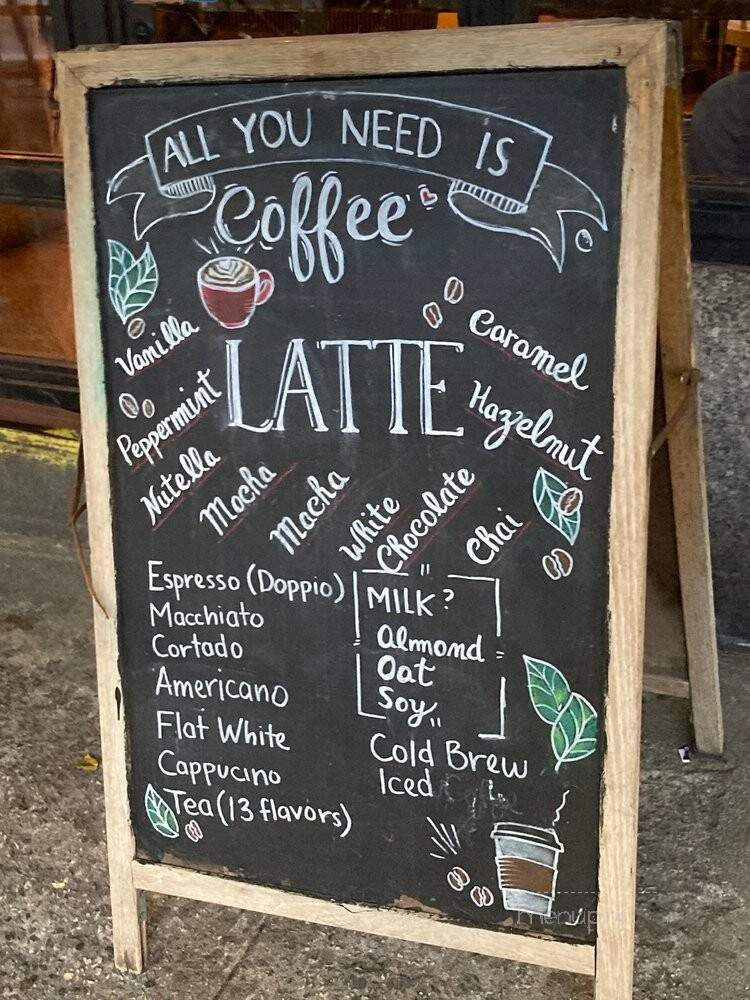 ALL YOU NEED IS
Coffee
LATTE
Vanilla
Peppermint
Nutella
Mocha
Macha
White
Chocolate
Chai
Caramel
Hazelnut
Espresso (Doppio)
Macchiato
Cortado
Americano
Flat White
Cappucino
Tea (13 flavors)
MILK?
Almond
Oat
Soy
Cold Brew
Iced